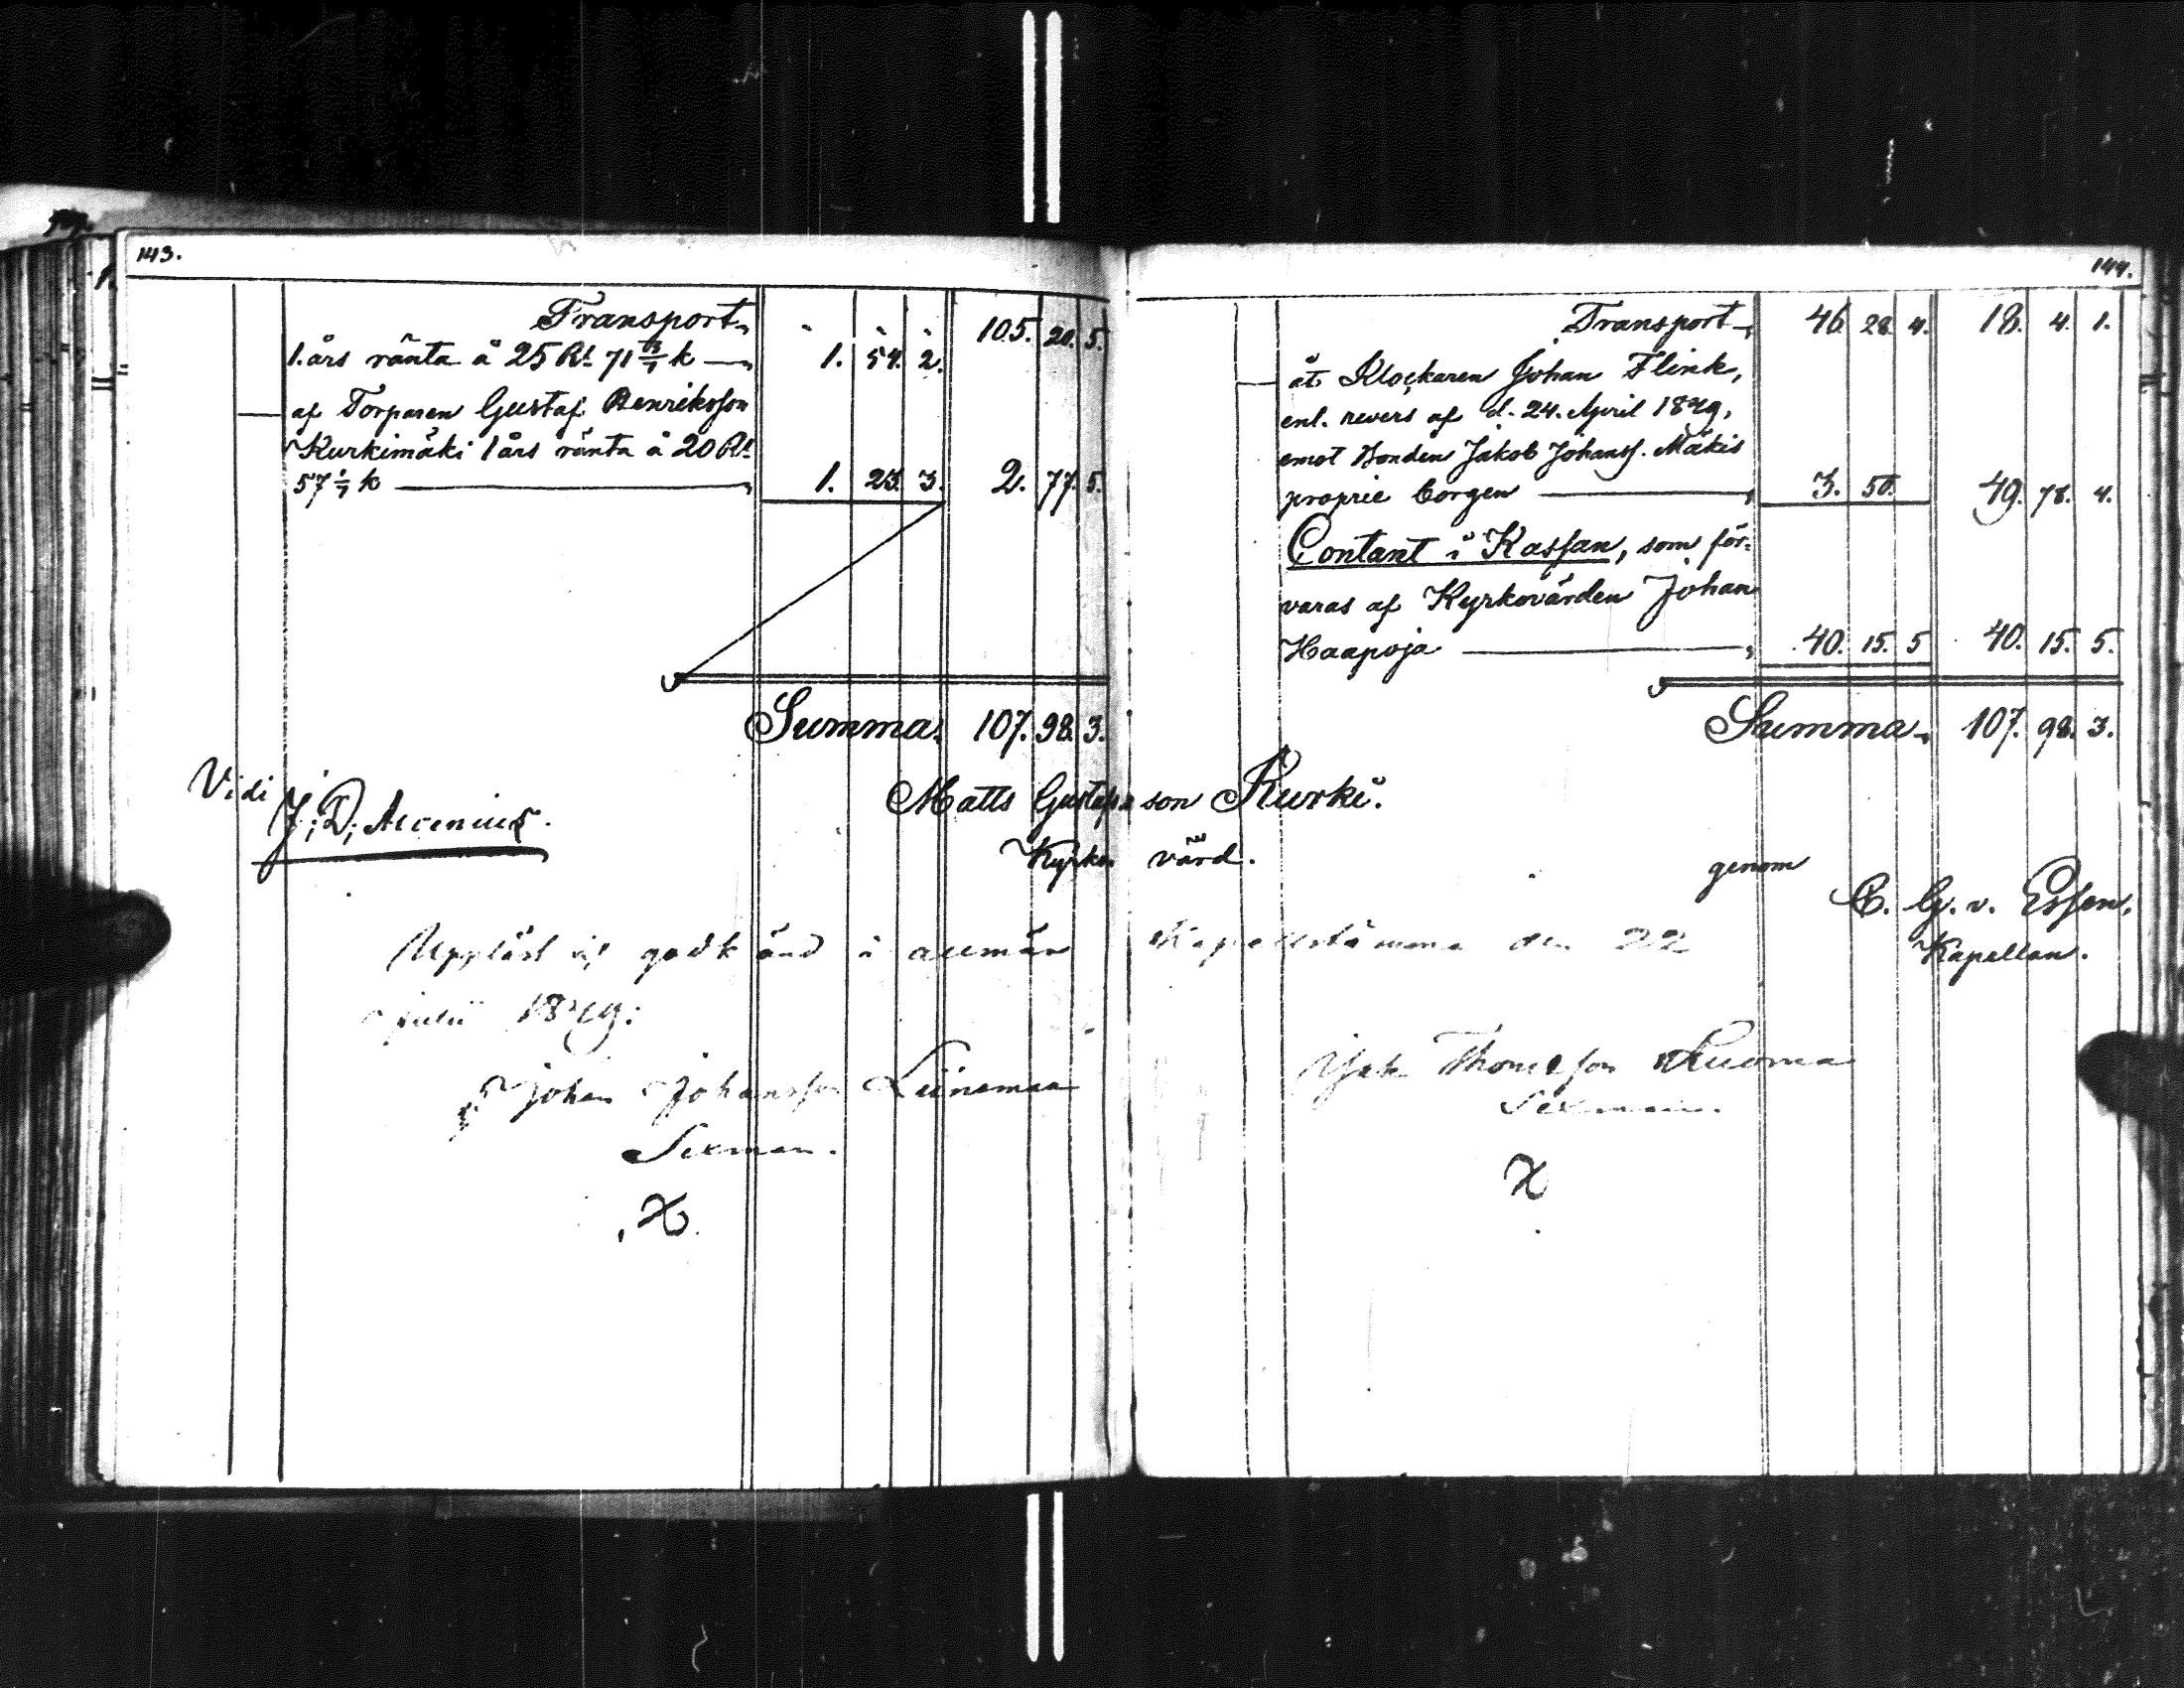 143.
Transport 105. 20. 5.
1. års ränta å 25 Rl 71 3/7 k 1. 54. 2.
af Torparen Gustaf Henriksson
Kurkimäki 1 års ränta å 20 Rl
57 1/7 k 1. 23. 3. 2. 77. 5.
Summa. 107. 98. 3.
Vidi
J. D. Alcenius.
144.
Transport 46. 28. 4. 18. 4. 1.
åt Klockaren Johan Flink,
enl. revers af d. 24. April 1849,
emot Bonden Jakob Johanss. Mäkis
proprie borgen 3. 50. 49. 78. 4.
Contant i Kassan, som för-
varas af Kyrkovärden Johan
Haapoja 40. 15. 5 40. 15. 5.
Summa 107. 98. 3.
Matts Gustafsson Kurki.
Kyrkovärd.
genom
C. G. v. Essen.
Kapellan.
Uppläst och godkänd å allmän Kapellstämma den 22
julii 1849:
Johan Johansson Liinamaa
Sexman.
X
Jak Thomasson Luoma
Sexman.
X